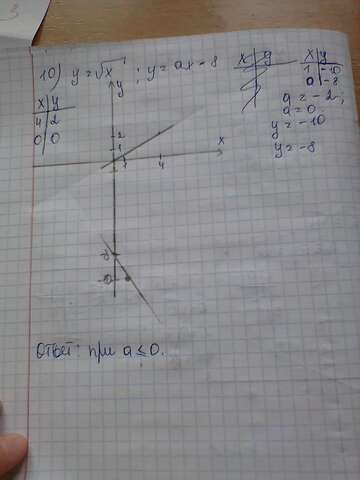 3
10) y = √x ; y = ax - 8
x y
4 2
0 0
x y
x y
1 -10
0 -8
a = -2,
a = 0
y = -10
y = -8
y
2
1
x
1
4
Ответ: при a ≤ 0.